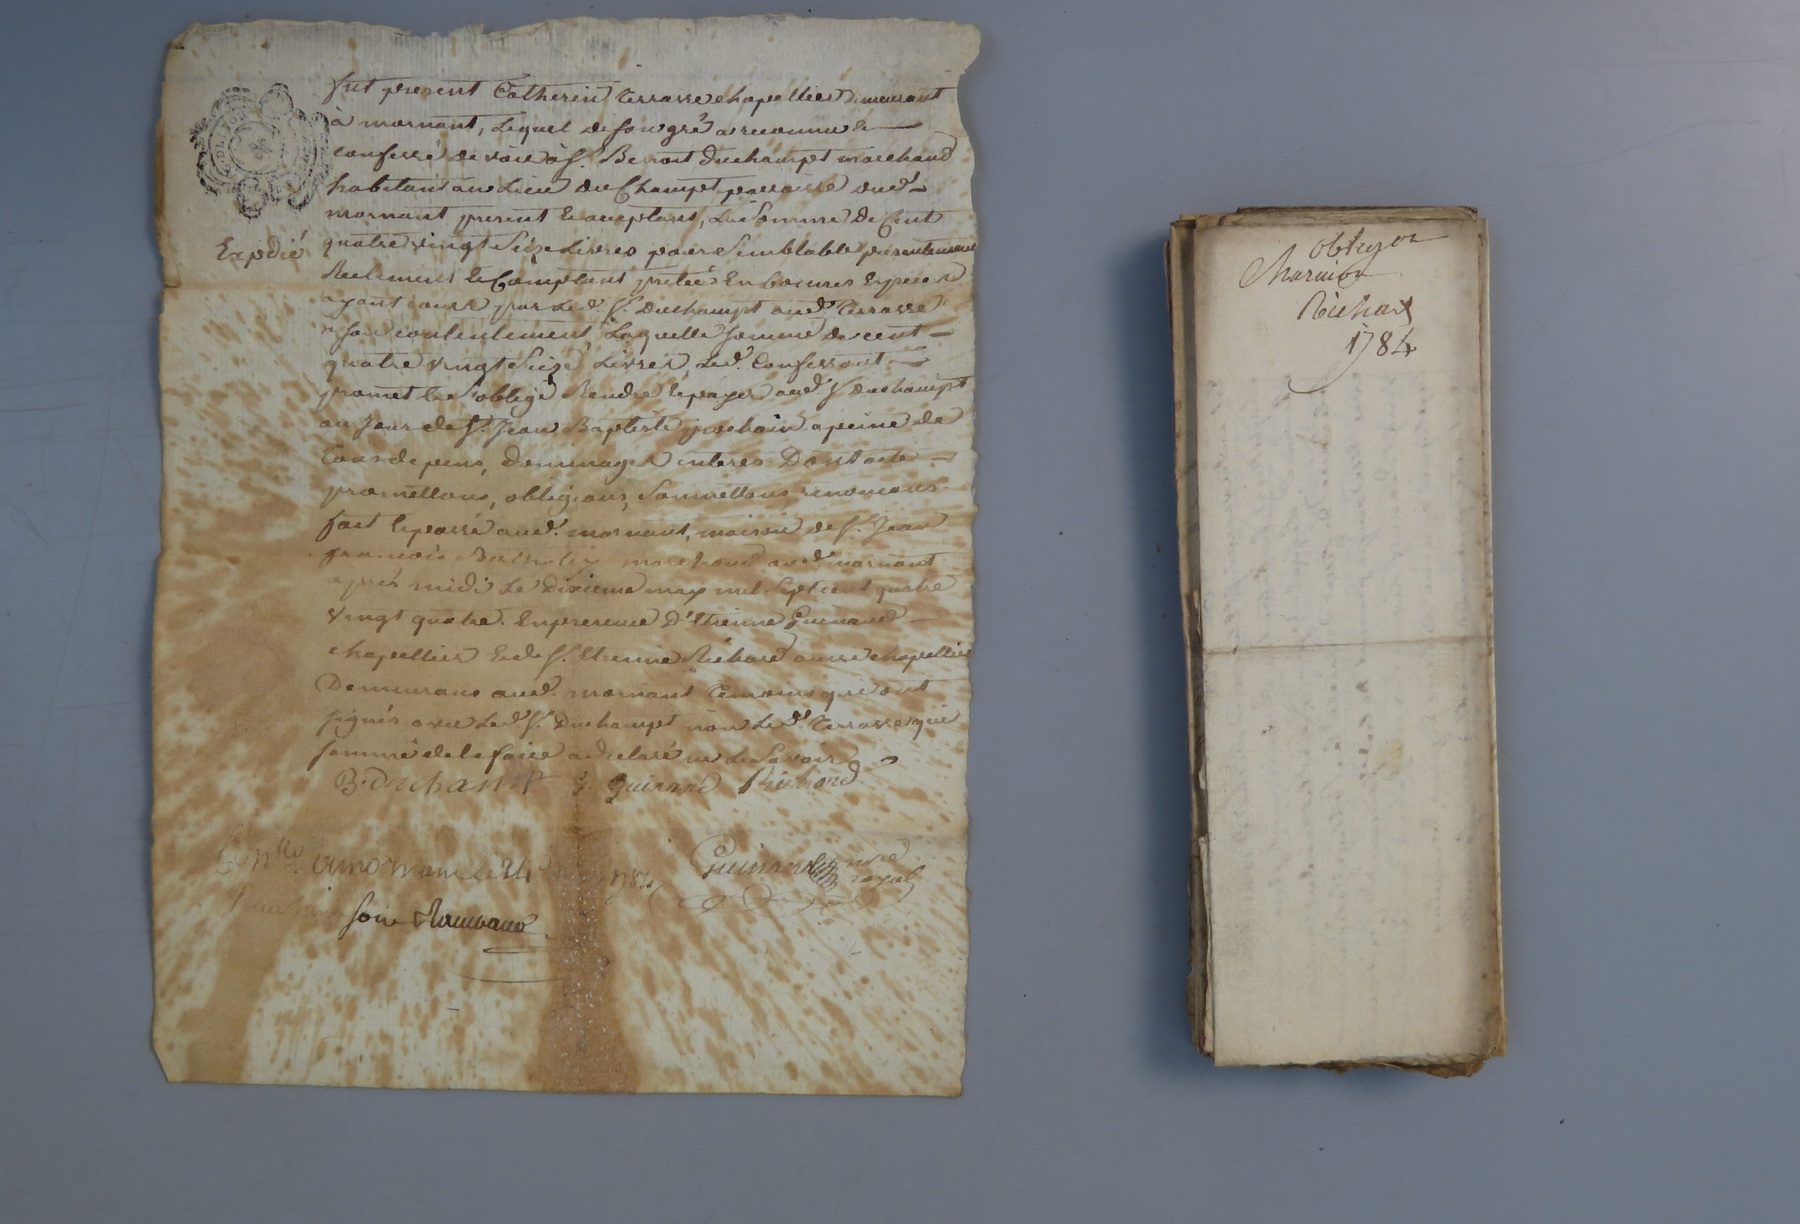 fut present Catherin terrasse chapellier demeurant
à mornant, lequel de son gré a reconnu &
confessé devoir à s.r Benoit Duchampt marchand
habitant au Lieu du Champt paroisse dud.
mornant present & acceptant, La Somme De Cent
quatre vingt Seize Livres pour Semblable presentement
Expedié
Reelement & Comptant pretée En bonnes Especes
ayant cours par Le d. S.r Duchampt aud. terrasse
a son contentement, Laquelle somme de cent
quatre vingt Seize Livres, Led. Confessant
promet & s'oblige Rendre & payer aud. S.r Duchampt
au Jour de S.t Jean Baptiste prochain a peine de
tous depens, dommages interes Dont acte
promettans, obligeans, Soumettans, renonceans
fait & passé aud. mornant, maison de S.r Jean
francois marchand aud. mornant
après midi Le dixieme may mil Sept cent quatre
vingt quatre. En presence D'Etienne Guinand
chapellier & de S.r Etienne Richard aussi chapellier
Demeurans aud. mornant temoins qui ont
signés avec Led. S.r Duchampt non Led. terrasse qui
sommé de le faire a declaré ne Le Savoir
B. Duchampt E. Guinand Richard
Guinand no.re
royal
C.lle a mornant Le 24
obligon
Richard
1784